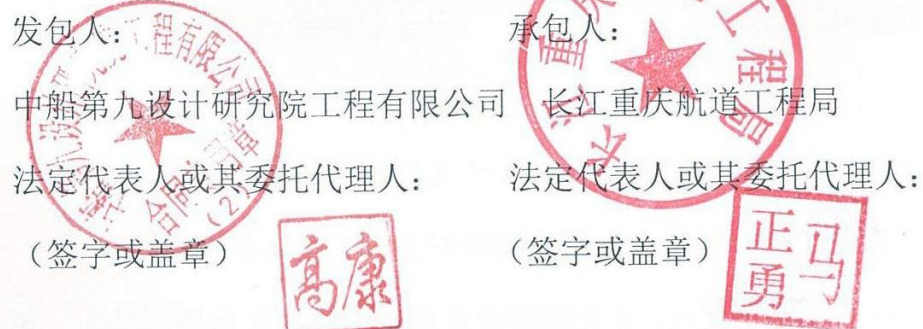 发包人：
中船第九设计研究院工程有限公司
法定代表人或其委托代理人：
（签字或盖章）
高康
承包人：
长江重庆航道工程局
法定代表人或其委托代理人：
（签字或盖章）
马正勇